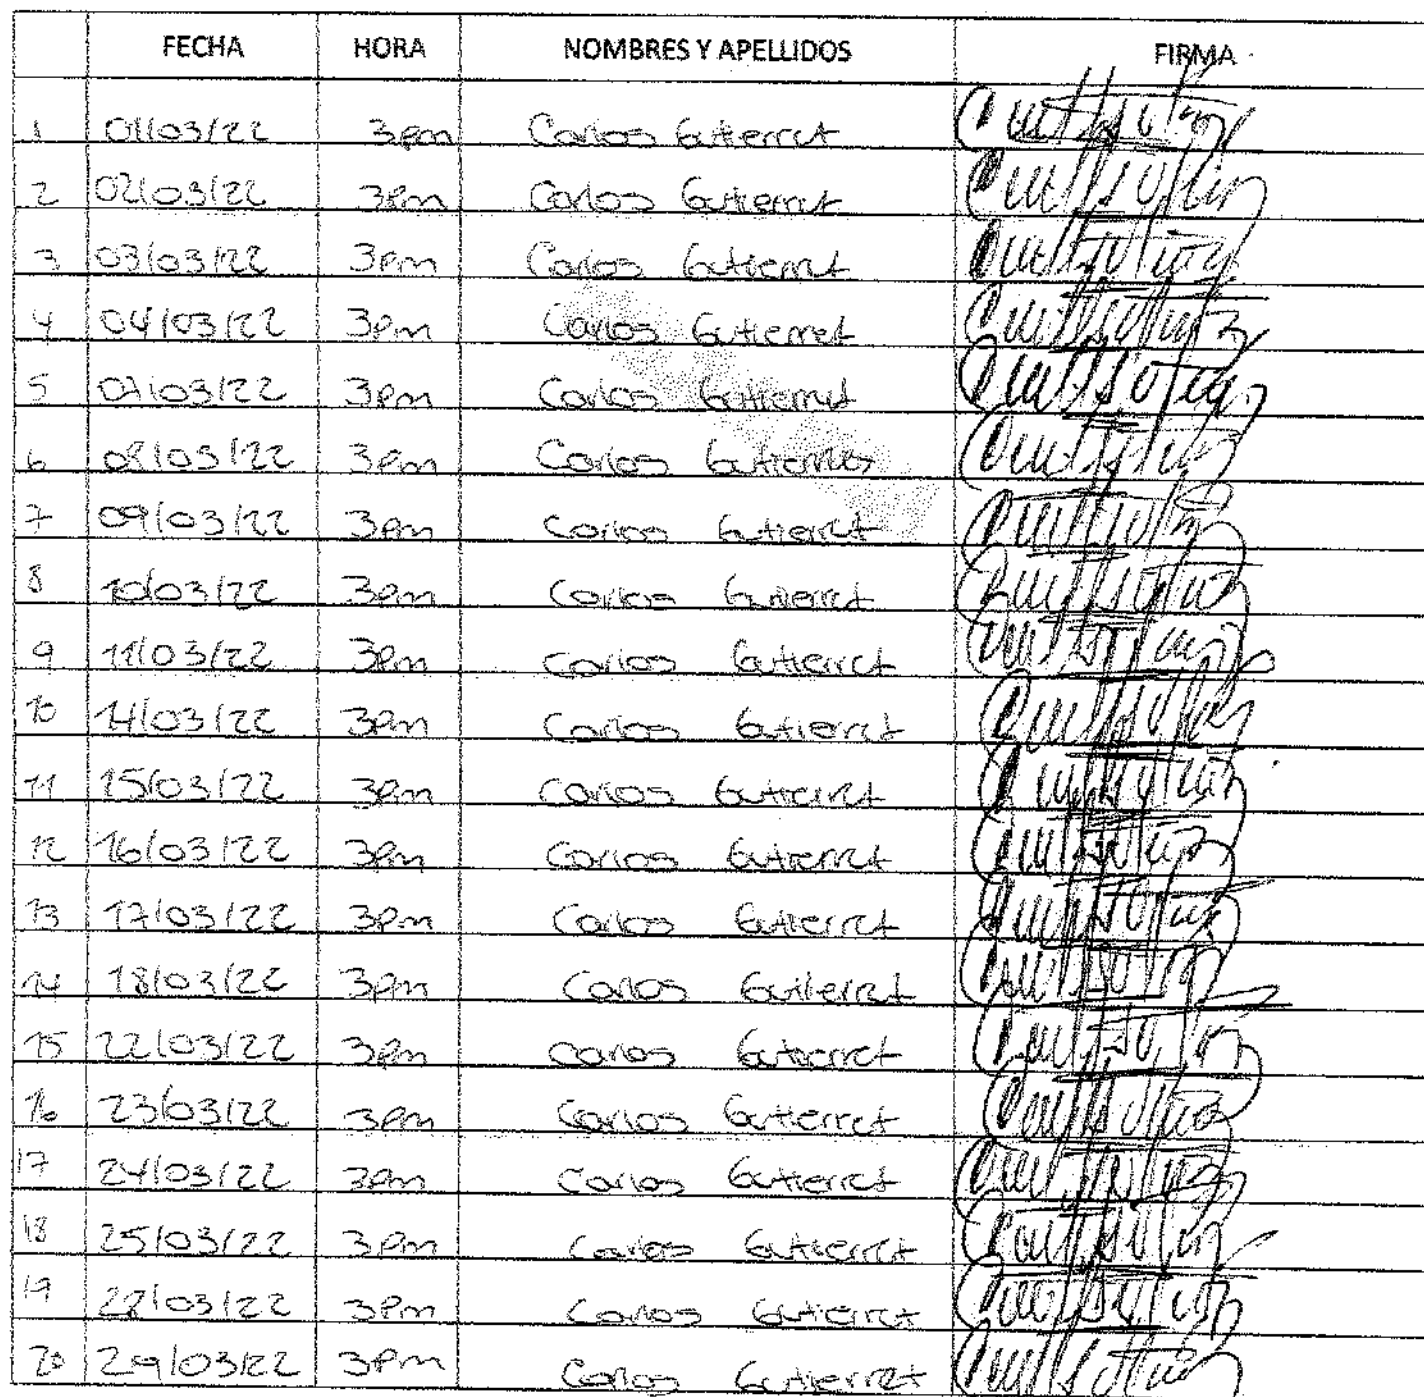 FECHA HORA NOMBRES Y APELLIDOS FIRMA
1 01/03/22 3pm Carlos Gutierrez
2 02/03/22 3pm Carlos Gutierrez
3 03/03/22 3pm Carlos Gutierrez
4 04/03/22 3pm Carlos Gutierrez
5 07/03/22 3pm Carlos Gutierrez
6 08/03/22 3pm Carlos Gutierrez
7 09/03/22 3pm Carlos Gutierrez
8 10/03/22 3pm Carlos Gutierrez
9 11/03/22 3pm Carlos Gutierrez
10 14/03/22 3pm Carlos Gutierrez
11 15/03/22 3pm Carlos Gutierrez
12 16/03/22 3pm Carlos Gutierrez
13 17/03/22 3pm Carlos Gutierrez
14 18/03/22 3pm Carlos Gutierrez
15 22/03/22 3pm Carlos Gutierrez
16 23/03/22 3pm Carlos Gutierrez
17 24/03/22 3pm Carlos Gutierrez
18 25/03/22 3pm Carlos Gutierrez
19 28/03/22 3pm Carlos Gutierrez
20 29/03/22 3pm Carlos Gutierrez